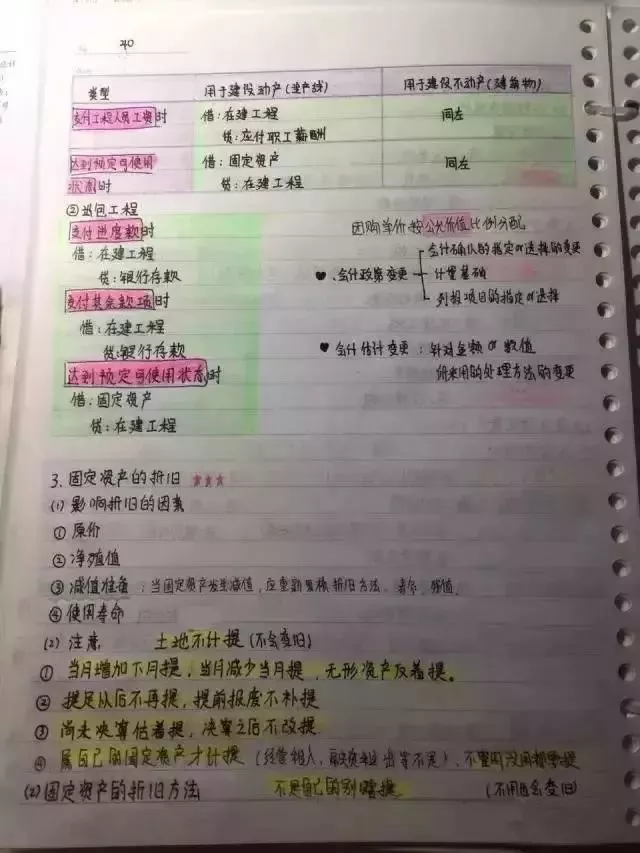 40
类型 用于建设动产(生产线) 用于建设不动产(建筑物)
支付工程人员工资时 借:在建工程 同左
贷:应付职工薪酬
达到预定可使用 借:固定资产 同左
状态时 贷:在建工程
②出包工程
支付进度款时
借:在建工程
贷:银行存款
支付其余款项时
借:在建工程
贷:银行存款
达到预定可使用状态时
借:固定资产
贷:在建工程
团购单价按公允价值比例分配
会计确认的指定or选择的变更
♥.会计政策变更 计量基础
列报项目的指定or选择
♥会计估计变更:针对金额or数值
所采用的处理方法的变更
3.固定资产的折旧 ★★★
(1)影响折旧的因素
①原价
②净残值
③减值准备:当固定资产发生减值,应重新 折旧方法、寿命、残值.
④使用寿命
(2)注意 土地不计提(不会变旧)
①当月增加下月提,当月减少当月提,无形资产反着提。
②提足以后不再提,提前报废不补提
③尚未决算估着提,决算之后不改提
④属自己的固定资产才计提(经营租入,融资租出等不是),不管用没用都要提
(2)固定资产的折旧方法 不是自己的别瞎提 (不用也会变旧)